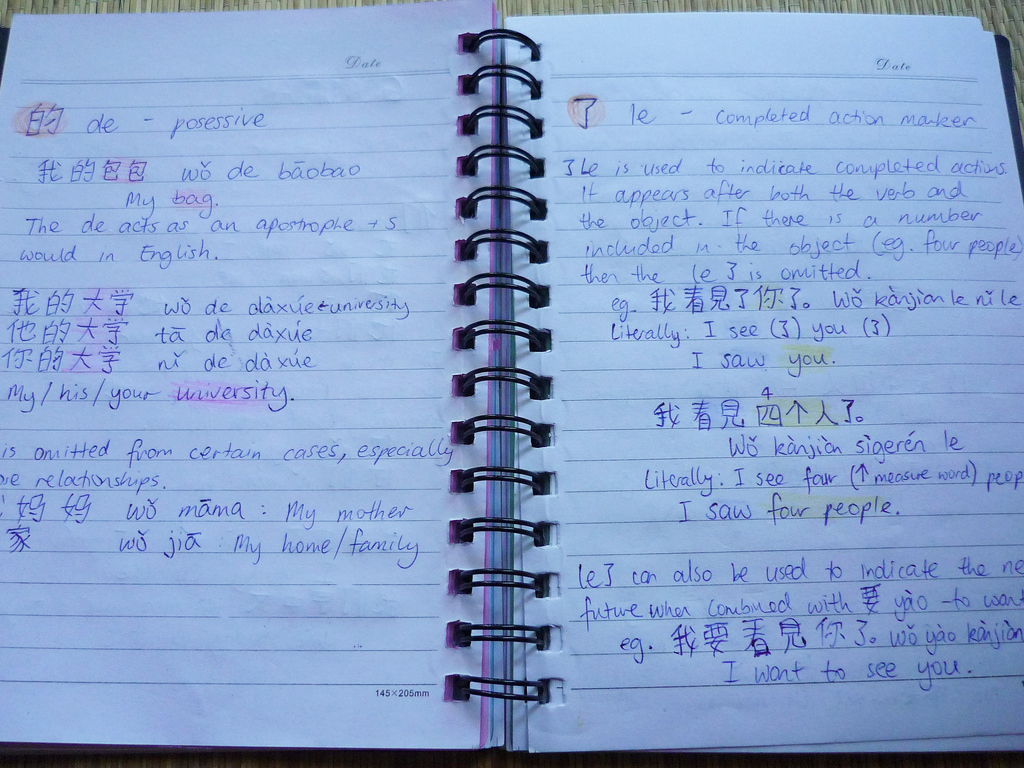 Date
的 de - posessive
我的包包 wǒ de bāobao
My bag.
The de acts as an apostrophe + s
would in English.
我的大学 wǒ de dàxúe ← university
他的大学 tā de dàxúe
你的大学 nǐ de dàxúe
My/his/your university.
is omitted from certain cases, especially
relationships.
妈妈 wǒ māma : My mother
家 wǒ jiā : My home/family
145×205mm
Date
了 le - completed action marker
了 le is used to indicate completed actions.
It appears after both the verb and
the object. If there is a number
included in the object (eg. four people)
then the le 了 is omitted.
eg. 我看見了你了。 Wǒ kànjiàn le nǐ le
Literally: I see (了) you (了)
I saw you.
4
我看見四个人了。
Wǒ kànjiàn sìgerén le
Literally: I see four (↑ measure word) peop
I saw four people.
le 了 can also be used to indicate the ne
future when combined with 要 yào - to want
eg. 我要看見你了。 wǒ yào kànjiàn
I want to see you.